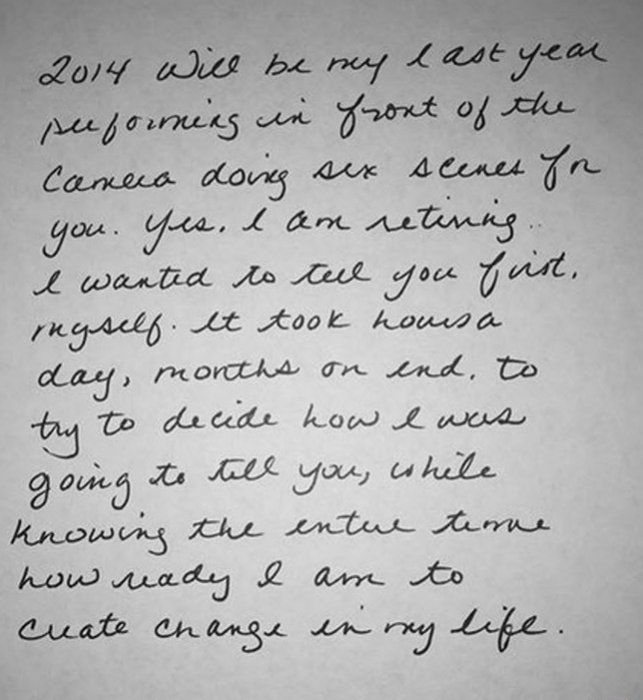 2014 will be my last year
performing in front of the
Camera doing sex scenes for
you. Yes. I am retiring..
I wanted to tell you first,
myself. It took hours a
day, months on end, to
try to decide how I was
going to tell you, while
knowing the entire time
how ready I am to
create change in my life.